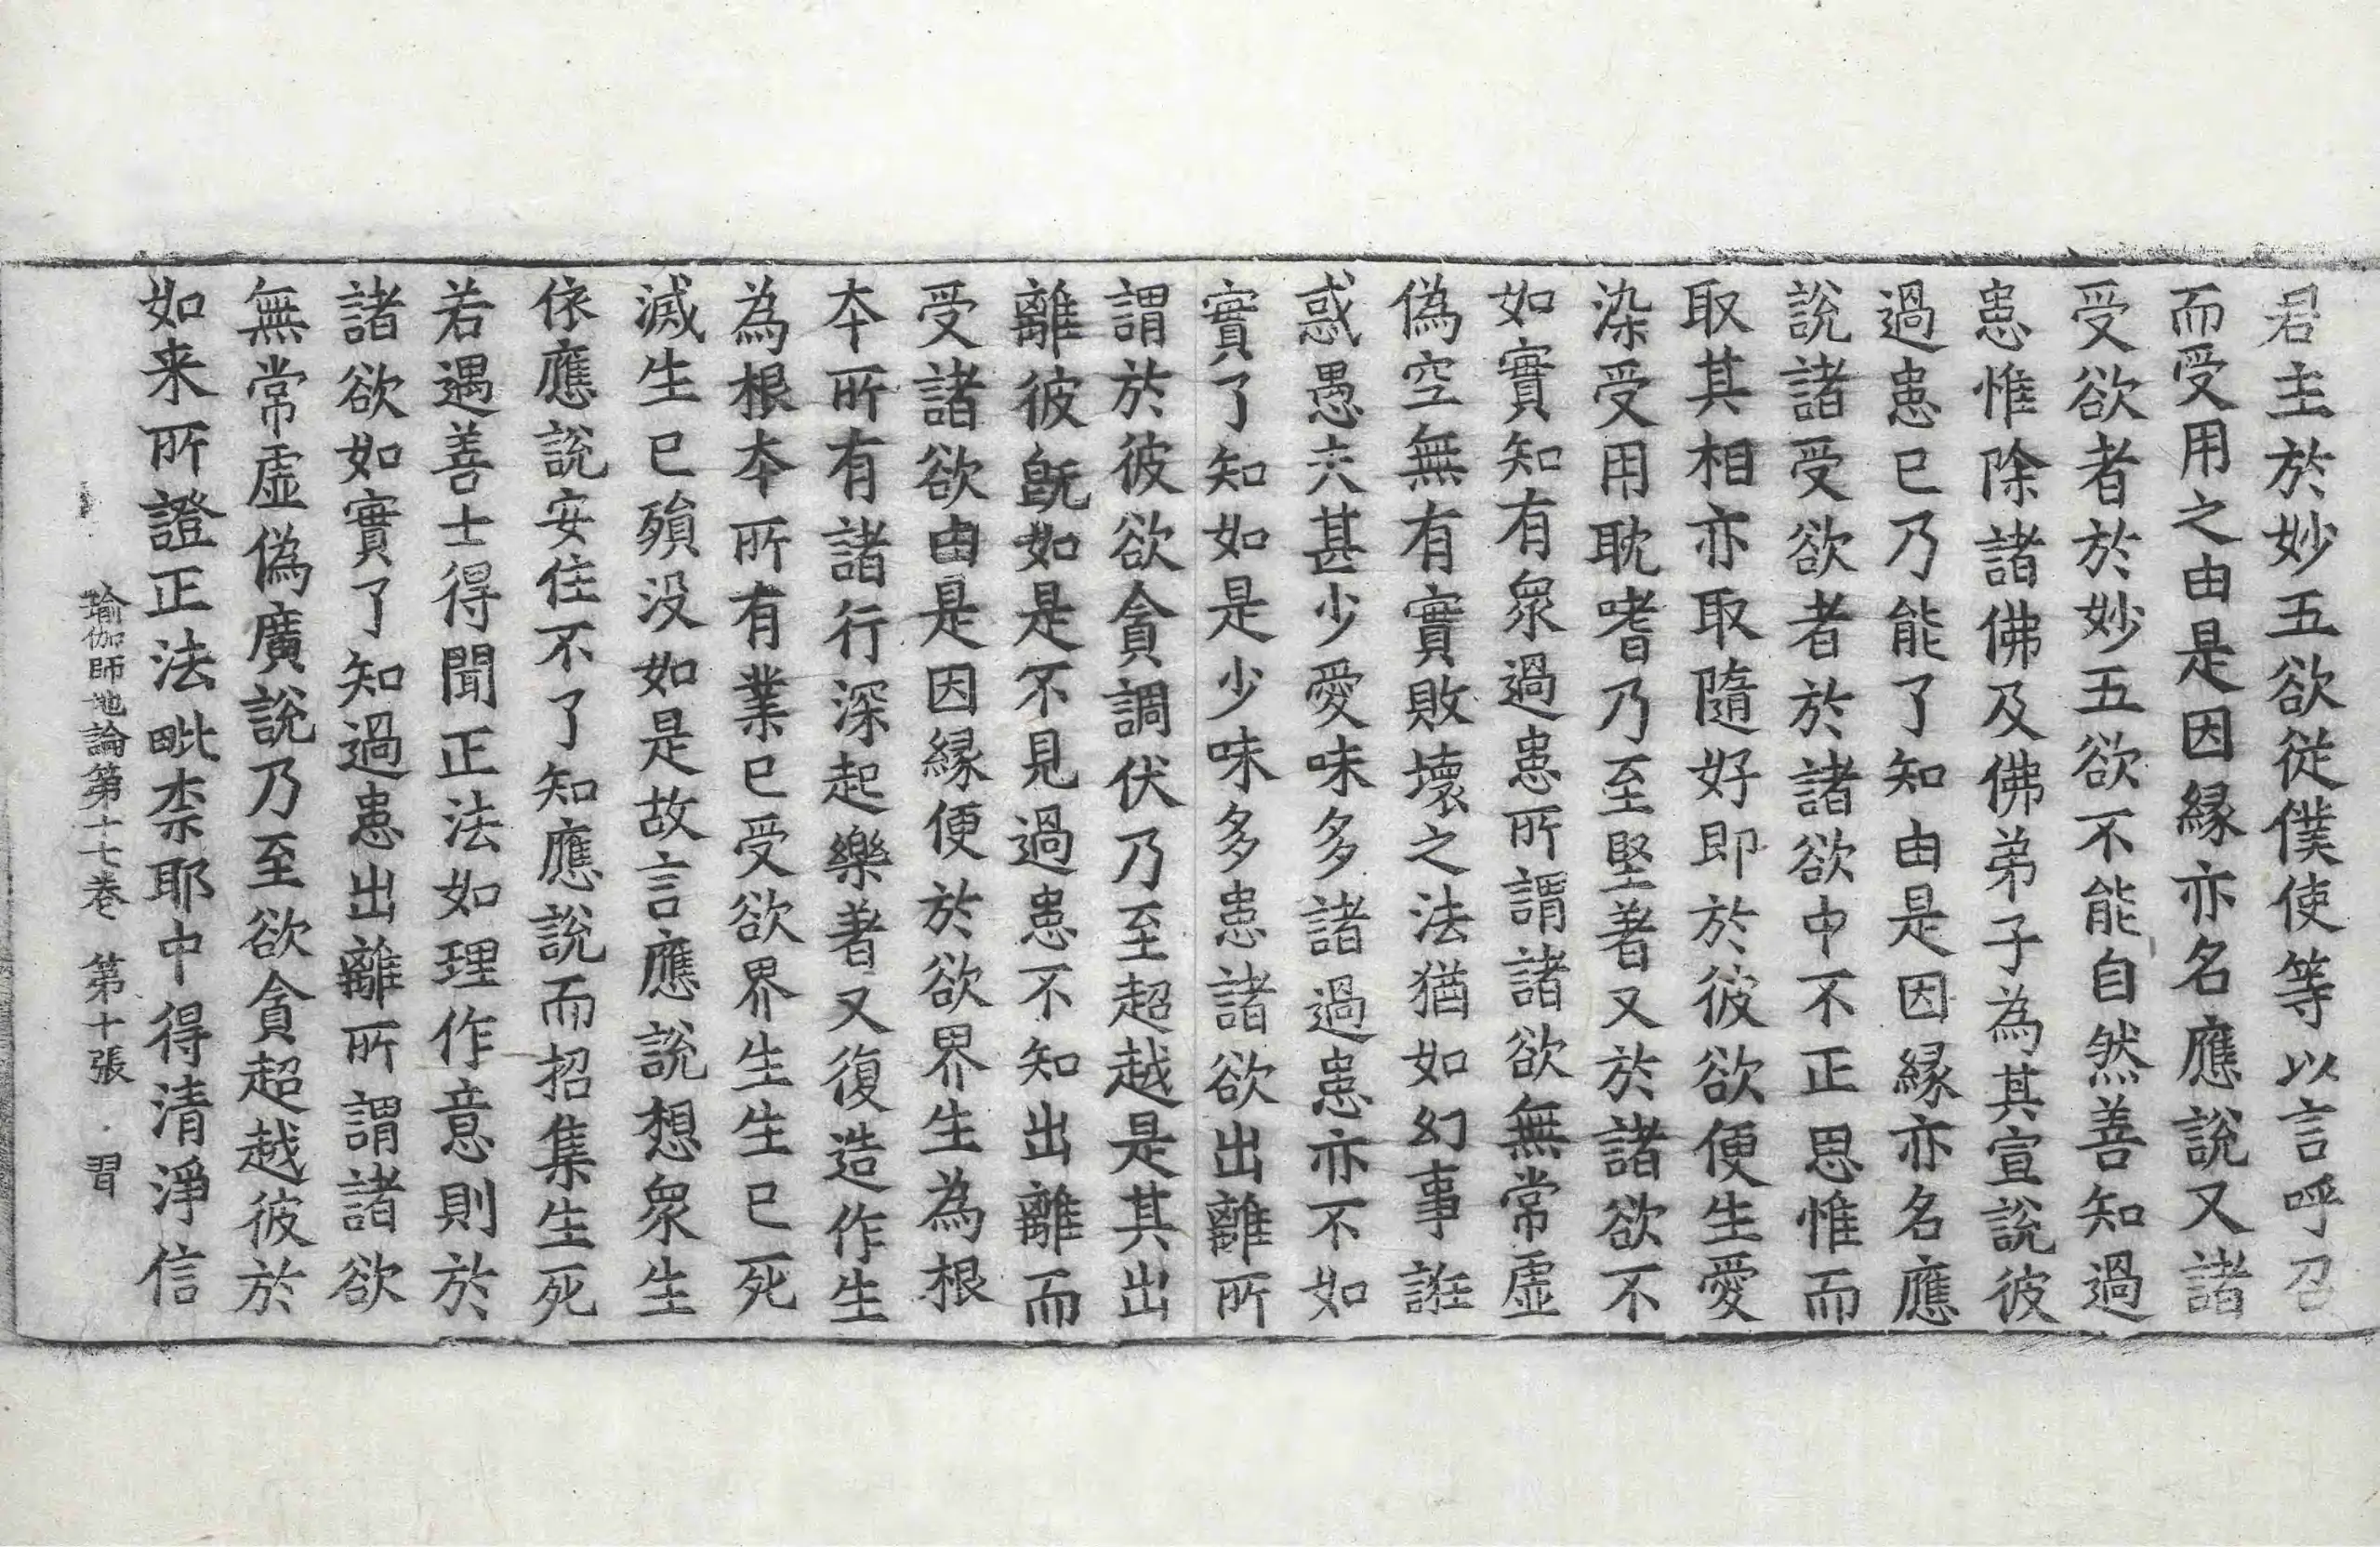 君主於妙五欲從僕使等以言呼召
而受用之由是因緣亦名應說又諸
受欲者於妙五欲不能自然善知過
患惟除諸佛及佛弟子為其宣說彼
過患已乃能了知由是因緣亦名應
說諸受欲者於諸欲中不正思惟而
取其相亦取隨好即於彼欲便生愛
染受用耽嗜乃至堅著又於諸欲不
如實知有眾過患所謂諸欲無常虛
偽空無有實敗壞之法猶如幻事誑
惑愚夫甚少愛味多諸過患亦不如
實了知如是少味多患諸欲出離所
謂於彼欲貪調伏乃至超越是其出
離彼既如是不見過患不知出離而
受諸欲由是因緣便於欲界生為根
本所有諸行深起樂著又復造作生
為根本所有業已受欲界生生已死
滅生已殞没如是故言應說想眾生
依應說安住不了知應說而招集生死
若遇善士得聞正法如理作意則於
諸欲如實了知過患出離所謂諸欲
無常虛偽廣說乃至欲貪超越彼於
如来所證正法毗柰耶中得清淨信
瑜伽師地論第十七卷 第十張 習